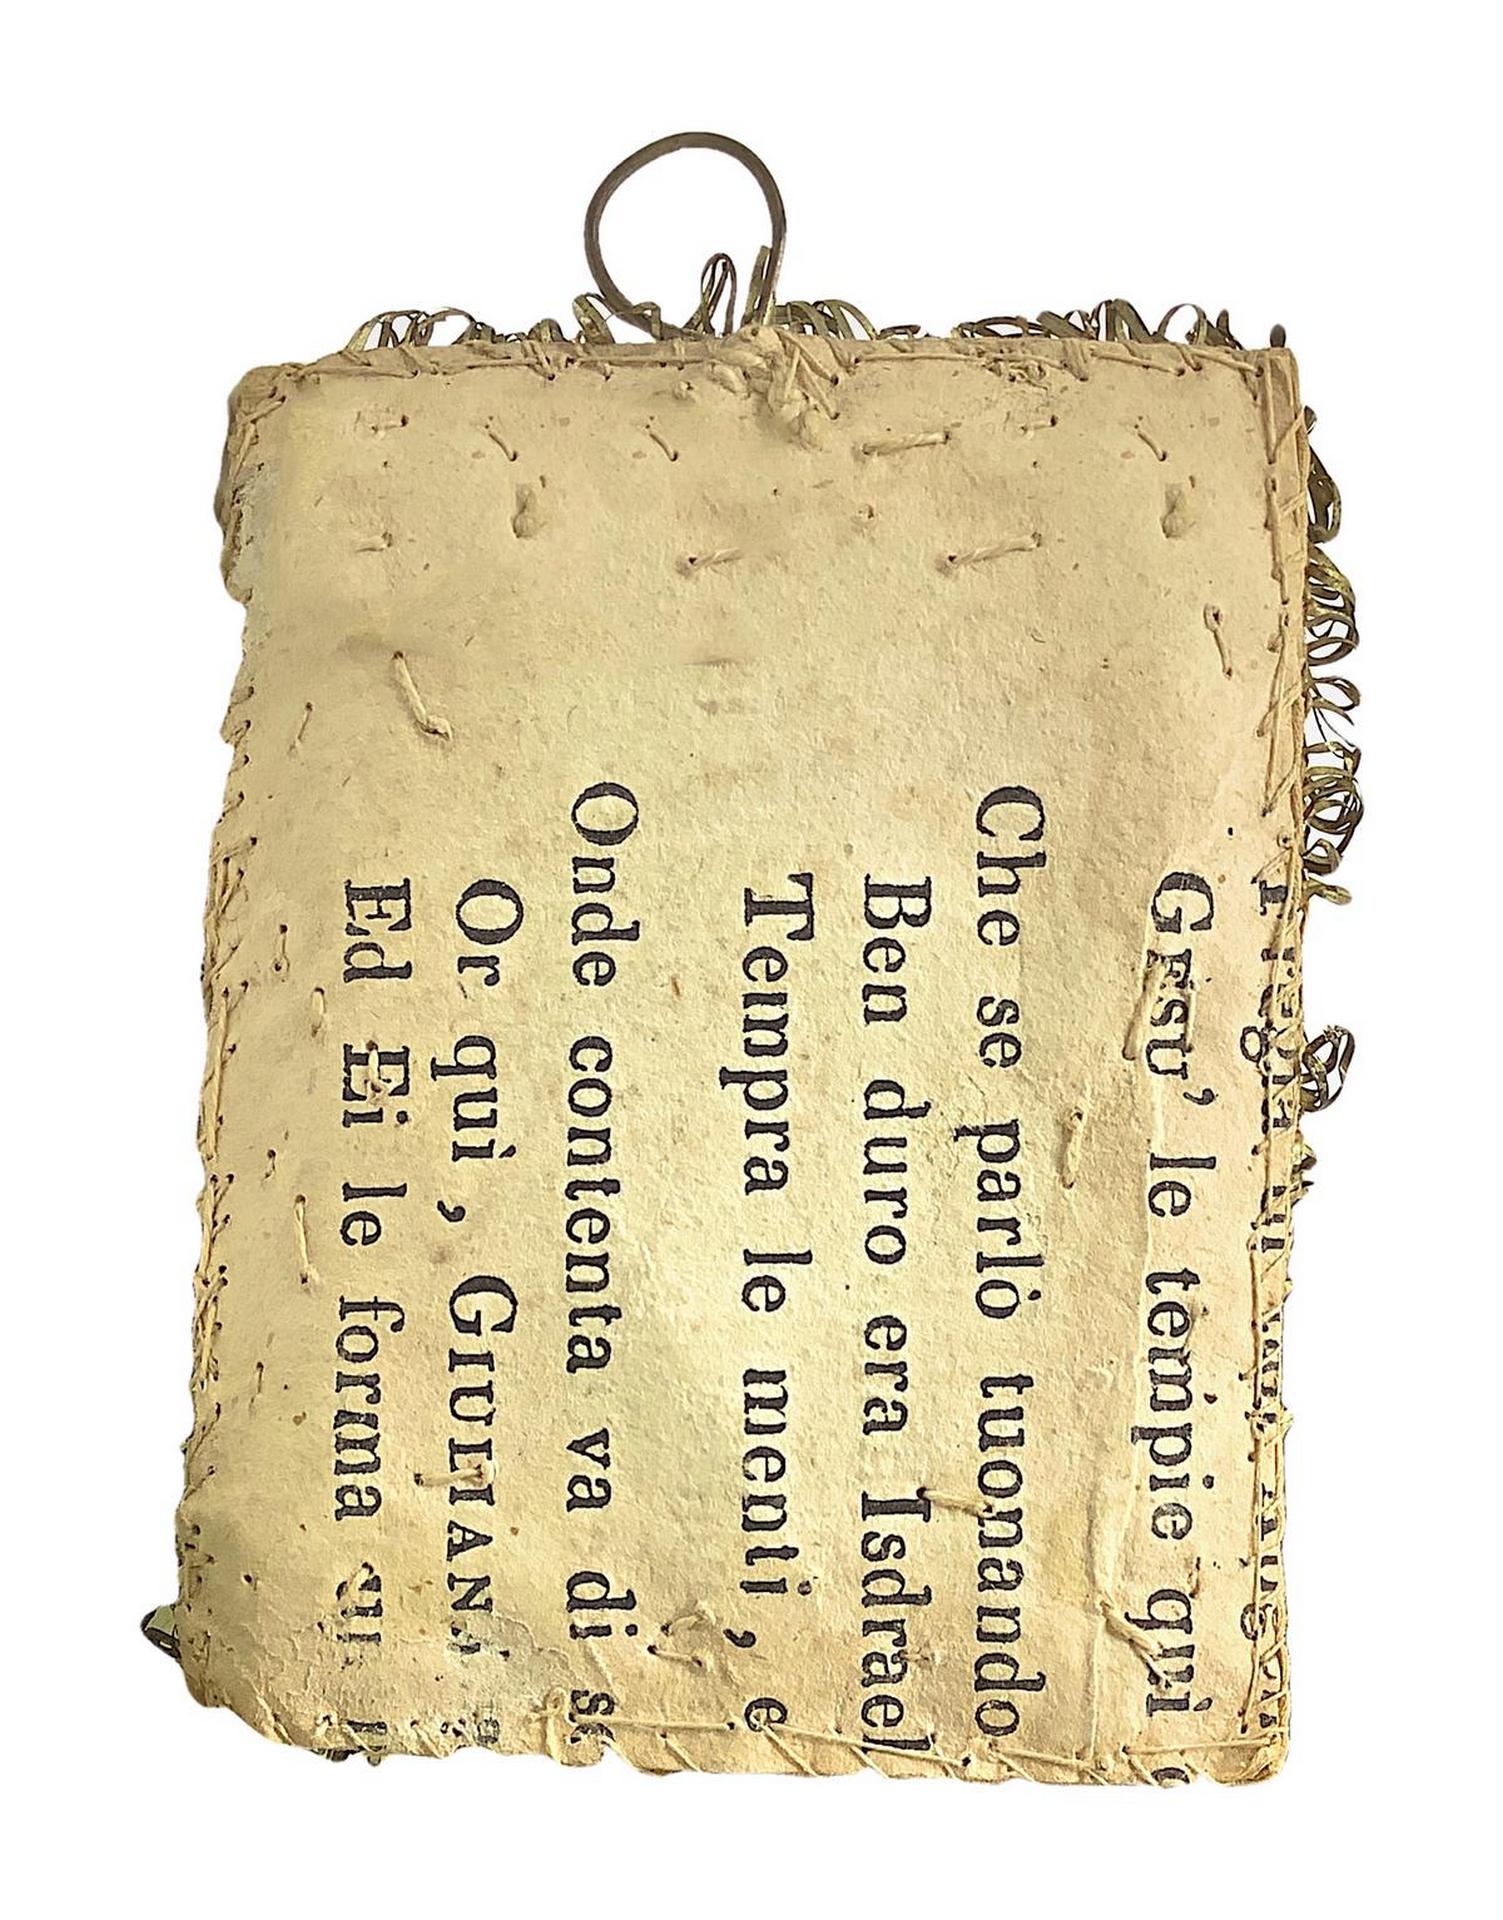 GESU' le tempie qui
Che se parlò tuonando
Ben duro era Isdrael
Tempra le menti, e
Onde contenta va di se
Or qui, GIULIAN
Ed Ei le forma